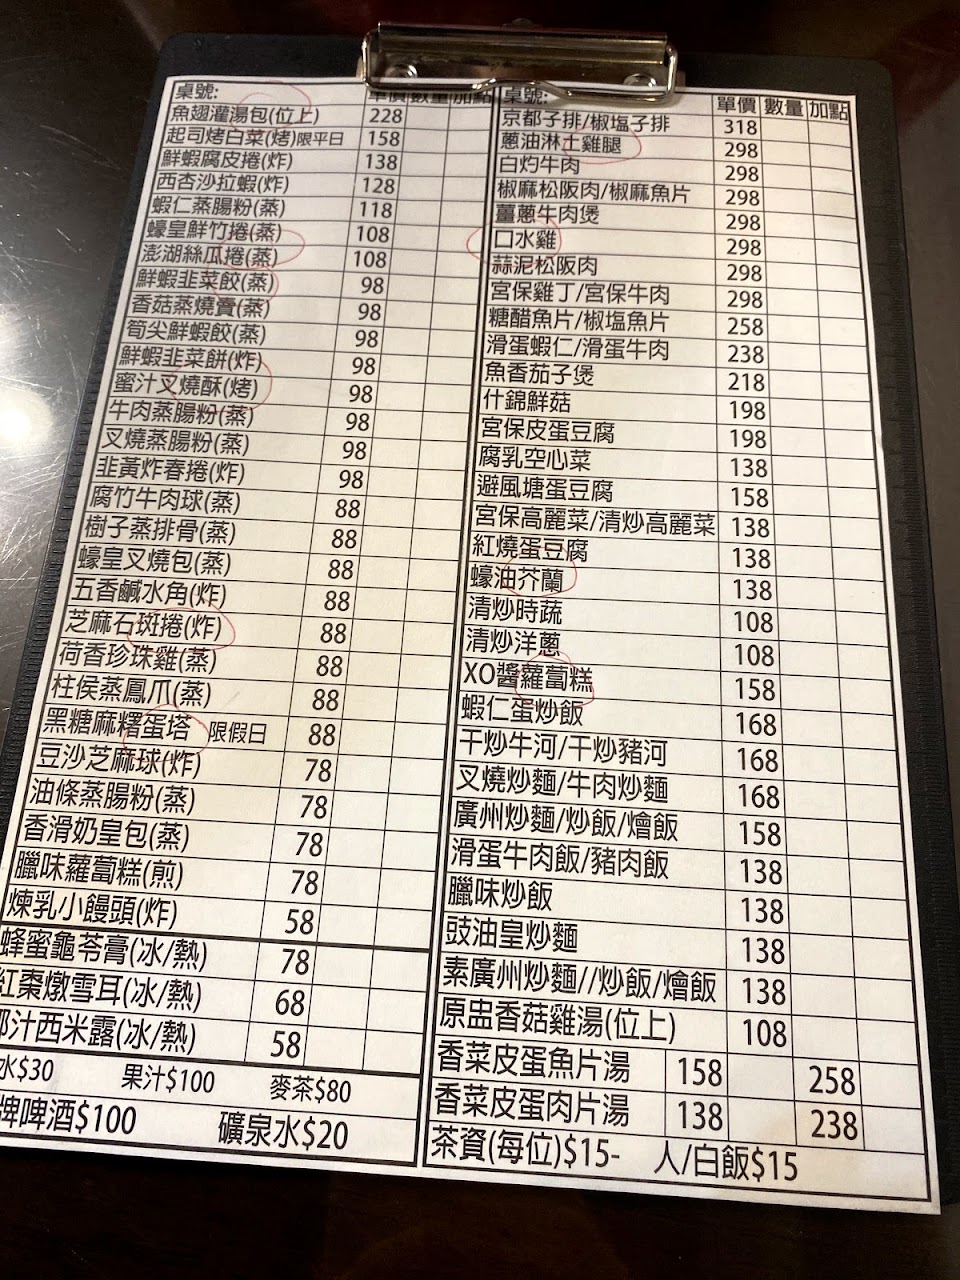 桌號: 單價 數量 加點
魚翅灌湯包(位上) 228
起司烤白菜(烤)限平日 158
鮮蝦腐皮捲(炸) 138
西杏沙拉蝦(炸) 128
蝦仁蒸腸粉(蒸) 118
蠔皇鮮竹捲(蒸) 108
澎湖絲瓜捲(蒸) 108
鮮蝦韭菜餃(蒸) 98
香菇蒸燒賣(蒸) 98
筍尖鮮蝦餃(蒸) 98
鮮蝦韭菜餅(炸) 98
蜜汁叉燒酥(烤) 98
牛肉蒸腸粉(蒸) 98
叉燒蒸腸粉(蒸) 98
韭黃炸春捲(炸) 98
腐竹牛肉球(蒸) 88
樹子蒸排骨(蒸) 88
蠔皇叉燒包(蒸) 88
五香鹹水角(炸) 88
芝麻石斑捲(炸) 88
荷香珍珠雞(蒸) 88
柱侯蒸鳳爪(蒸) 88
黑糖麻糬蛋塔 限假日 88
豆沙芝麻球(炸) 78
油條蒸腸粉(蒸) 78
香滑奶皇包(蒸) 78
臘味蘿蔔糕(煎) 78
煉乳小饅頭(炸) 58
蜂蜜龜苓膏(冰/熱) 78
紅棗燉雪耳(冰/熱) 68
汁西米露(冰/熱) 58
水$30 果汁$100 麥茶$80
牌啤酒$100 礦泉水$20
桌號: 單價 數量 加點
京都子排/椒塩子排 318
蔥油淋土雞腿 298
白灼牛肉 298
椒麻松阪肉/椒麻魚片 298
薑蔥牛肉煲 298
口水雞 298
蒜泥松阪肉 298
宮保雞丁/宮保牛肉 298
糖醋魚片/椒塩魚片 258
滑蛋蝦仁/滑蛋牛肉 238
魚香茄子煲 218
什錦鮮菇 198
宮保皮蛋豆腐 198
腐乳空心菜 138
避風塘蛋豆腐 158
宮保高麗菜/清炒高麗菜 138
紅燒蛋豆腐 138
蠔油芥蘭 138
清炒時蔬 108
清炒洋蔥 108
XO醬蘿蔔糕 158
蝦仁蛋炒飯 168
干炒牛河/干炒豬河 168
叉燒炒麵/牛肉炒麵 168
廣州炒麵/炒飯/燴飯 158
滑蛋牛肉飯/豬肉飯 138
臘味炒飯 138
豉油皇炒麵 138
素廣州炒麵//炒飯/燴飯 138
原盅香菇雞湯(位上) 108
香菜皮蛋魚片湯 158 258
香菜皮蛋肉片湯 138 238
茶資(每位)$15- 人/白飯$15